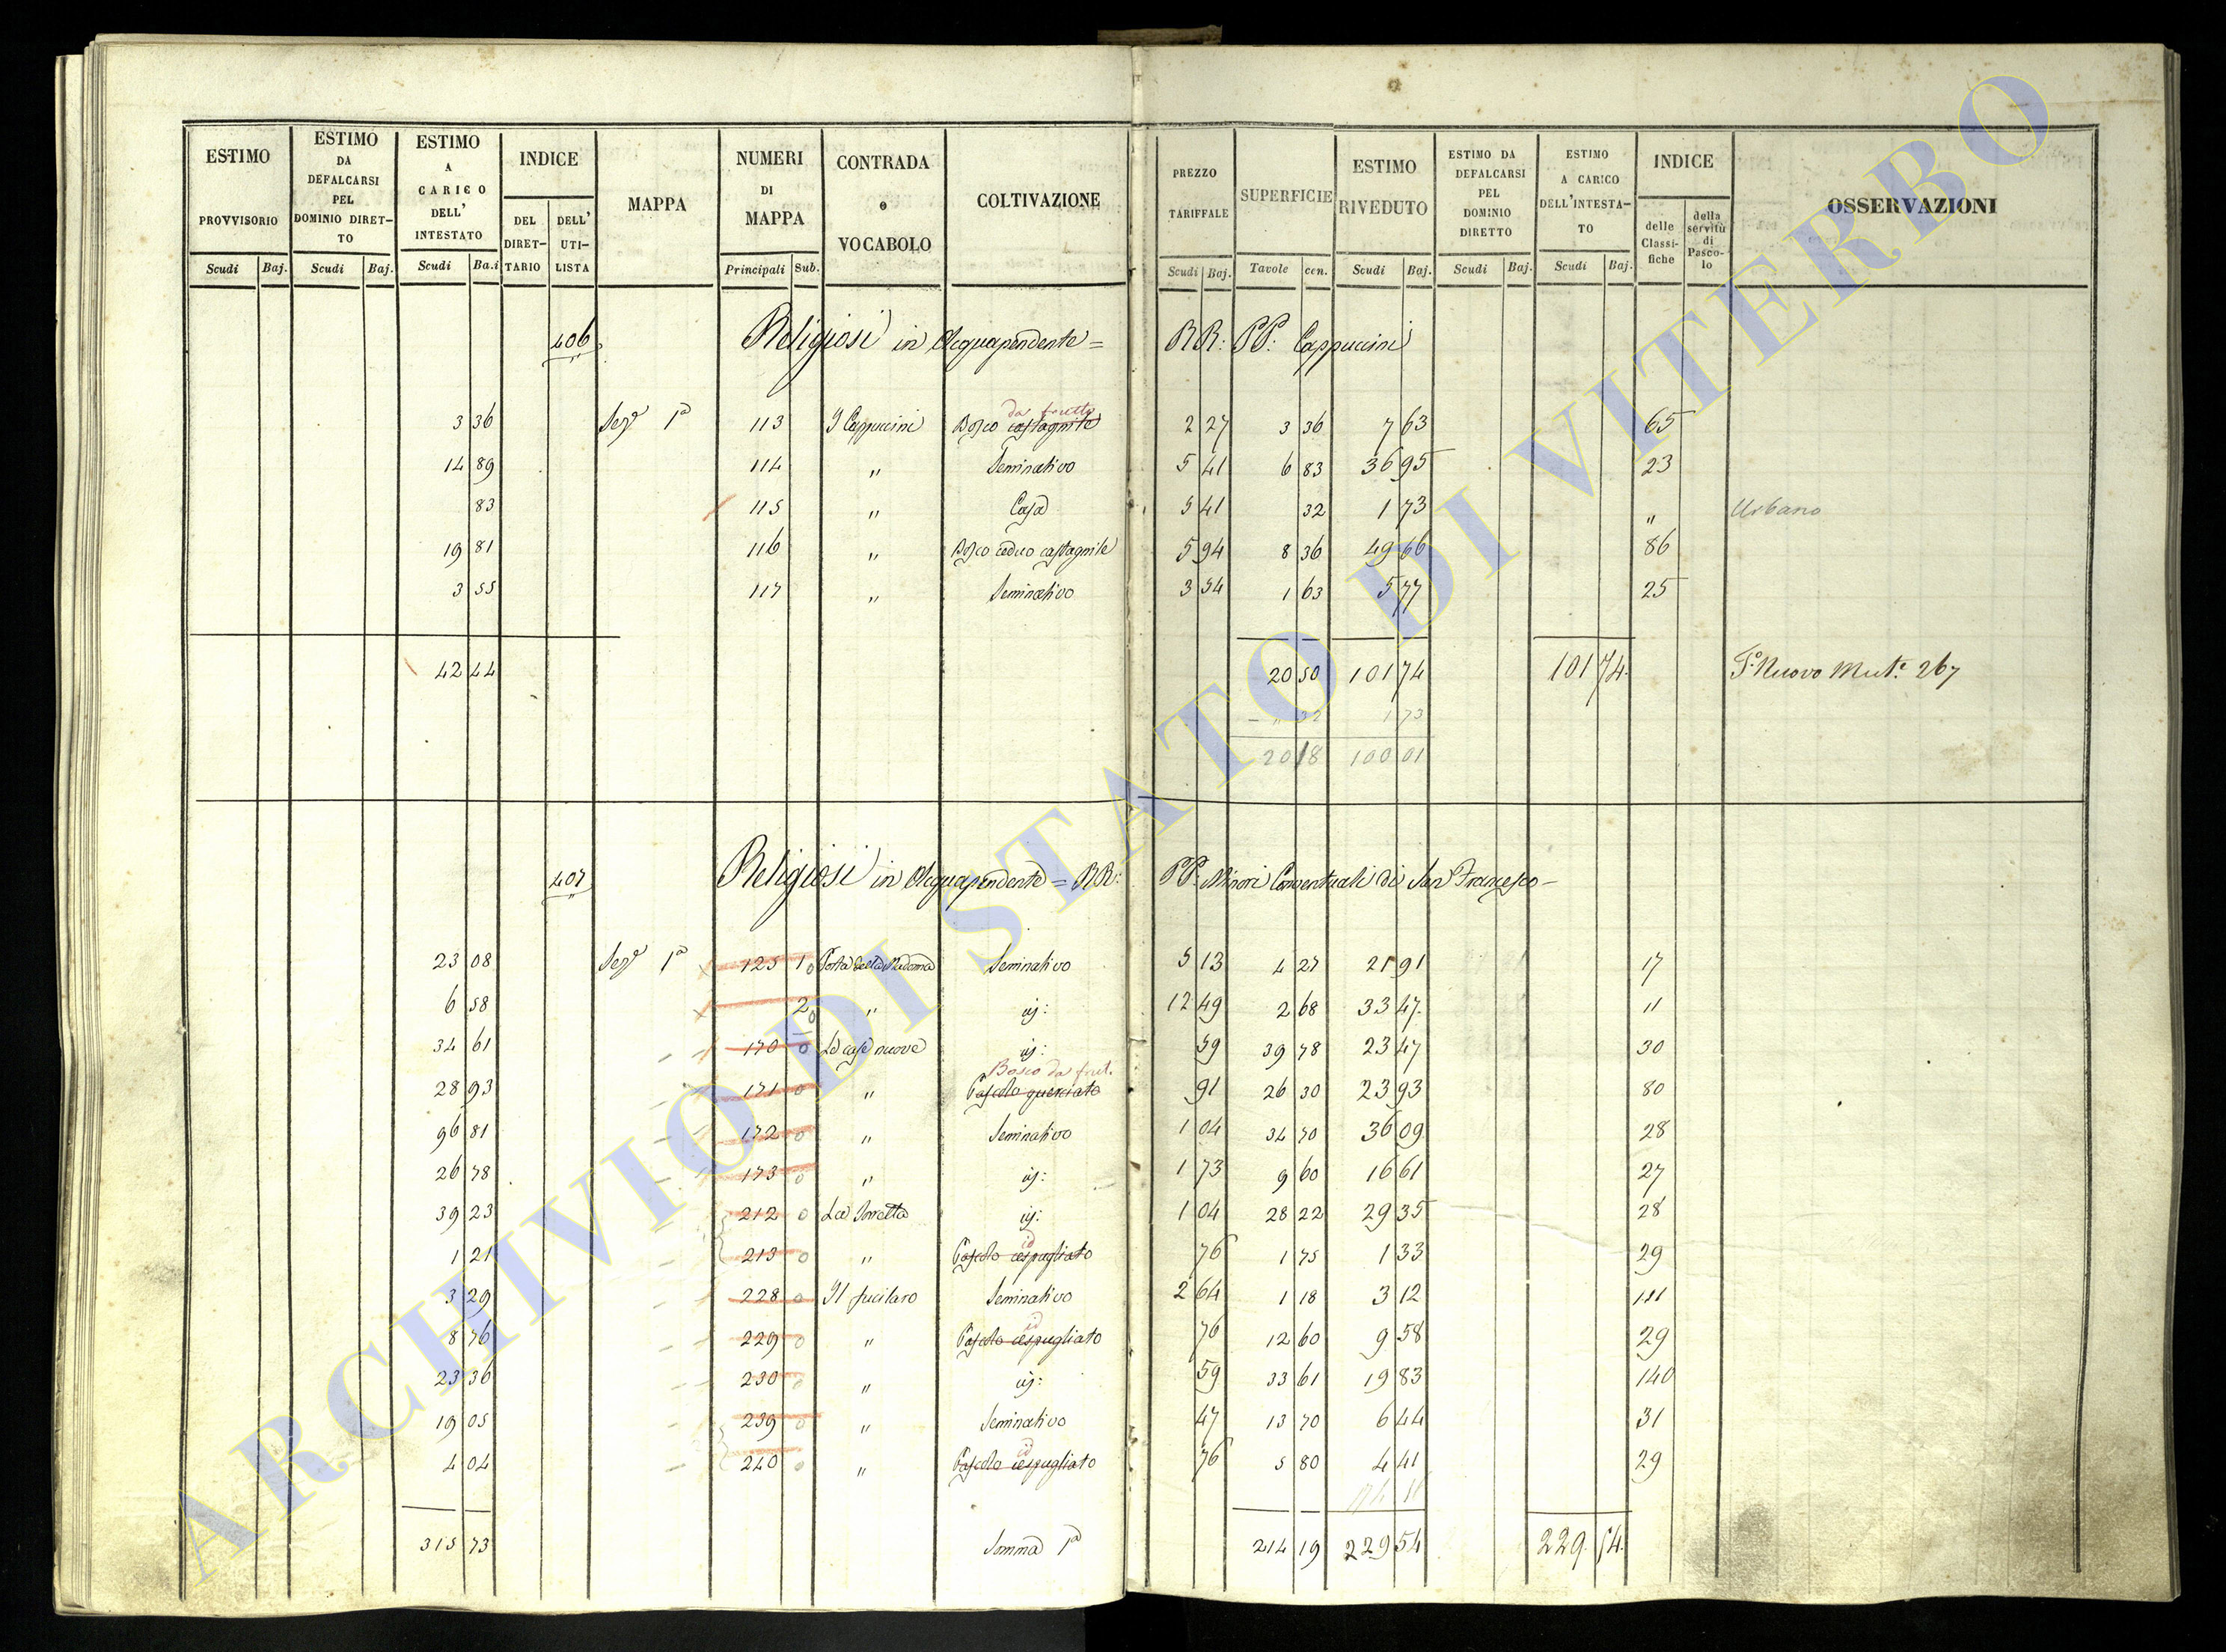 ESTIMO PROVVISORIO Scudi Baj. | ESTIMO DA DEFALCARSI PEL DOMINIO DIRETTO Scudi Baj. | ESTIMO A CARICO DELL' INTESTATO Scudi Ba.i | INDICE DEL DIRETTARIO DELL' UTILISTA | MAPPA | NUMERI DI MAPPA Principali Sub. | CONTRADA e VOCABOLO | COLTIVAZIONE | PREZZO TARIFFALE Scudi Baj. | SUPERFICIE Tavole cen. | ESTIMO RIVEDUTO Scudi Baj. | ESTIMO DA DEFALCARSI PEL DOMINIO DIRETTO Scudi Baj. | ESTIMO A CARICO DELL'INTESTATO Scudi Baj. | INDICE delle Classifiche della servitù di Pascolo | OSSERVAZIONI
406 Religiosi in Acquapendente = RR: PP: Cappuccini
da frutto
3 36 Sez.e 1a 113 I Cappuccini Bosco castagnile 2 27 3 36 7 63 65
14 89 114 " Seminativo 5 41 6 83 36 95 23
83 115 " Casa 5 41 32 1 73 " Urbano
19 81 116 " Bosco ceduo castagnile 5 94 8 36 49 66 86
3 55 117 " Seminativo 3 54 1 63 5 77 25
42 44 20 50 101 74 101 74. P.o Nuovo Mut.e 267
— " 32 1 73
20 18 100 01
407 Religiosi in Acquapendente = RR: PP: Minori Conventuali di San Francesco —
23 08 Sez.e 1a 125 1 Porta della Madonna Seminativo 5 13 4 27 21 91 17
6 58 2 " id: 12 49 2 68 33 47. 11
34 61 170 Le case nuove id: 59 39 78 23 47 30
Bosco da frut.
28 93 171 " Pascolo querciato 91 26 30 23 93 80
96 81 172 " Seminativo 1 04 34 70 36 09 28
26 78 173 " id: 1 73 9 60 16 61 27
39 23 212 La Torretta id: 1 04 28 22 29 35 28
id
1 21 213 " Pascolo cespugliato 76 1 75 1 33 29
3 29 228 Il fucilaro Seminativo 2 64 1 18 3 12 111
id
8 76 229 " Pascolo cespugliato 76 12 60 9 58 29
23 36 230 " id: 59 33 61 19 83 140
19 05 239 " Seminativo 47 13 70 6 44 31
id
4 04 240 " Pascolo cespugliato 76 5 80 4 41 29
315 73 Somma 1a 214 19 229 54 229. 54.
ARCHIVIO DI STATO DI VITERBO